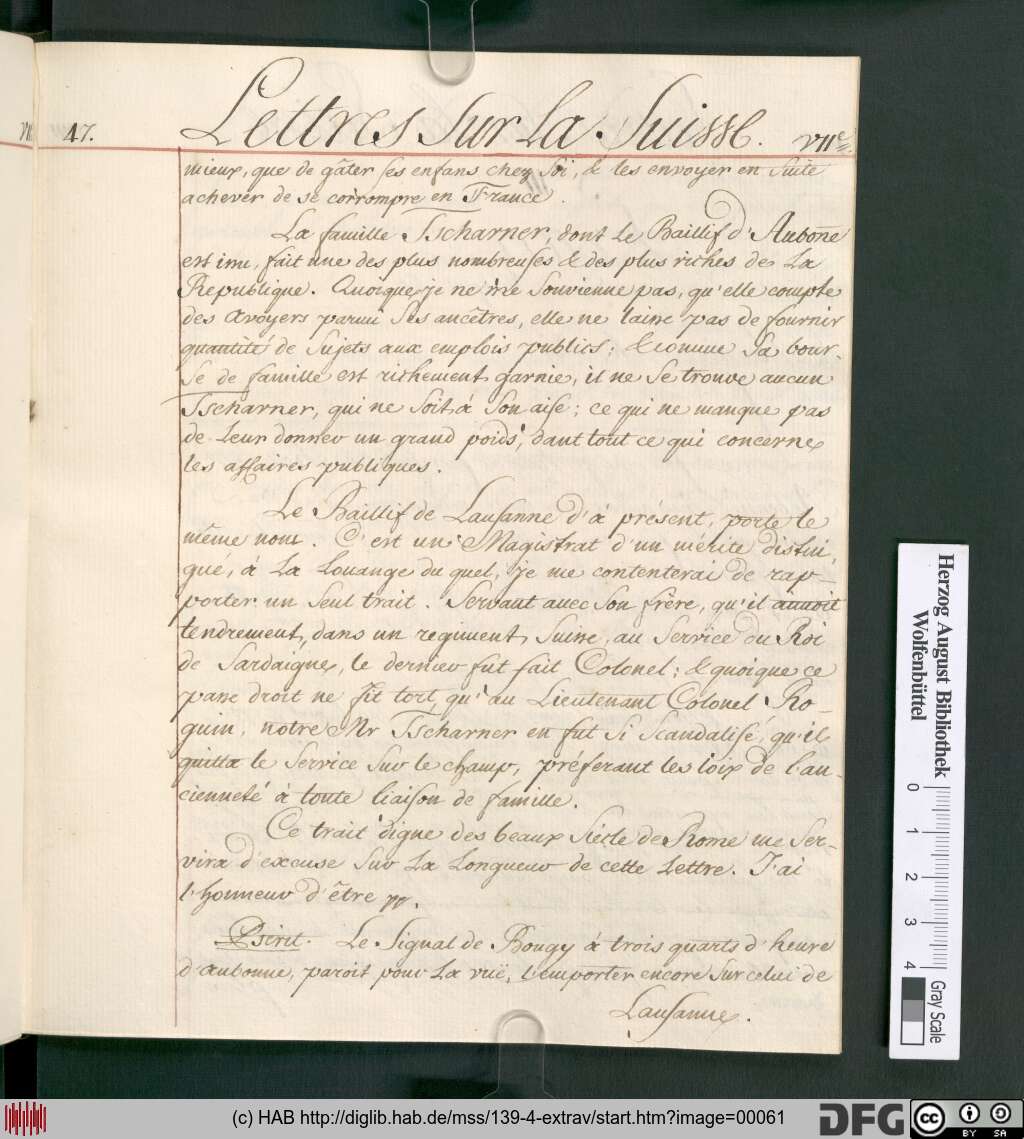 47. Lettres sur la Suisse. VIIe
mieux, que de gâter ses enfans chez soi, & les envoyer en suite
achever de se corrompre en France.
La famille Tscharner, dont le Baillif d'Aubone
est issu, fait une des plus nombreuses & des plus riches de la
Republique. Quoique je ne me souvienne pas, qu'elle compte
des Avoyers parmi ses ancêtres, elle ne laisse pas de fournir
quantité de sujets aux emplois publics; & comme sa bour-
se de famille est richement garnie, il ne se trouve aucun
Tscharner, qui ne soit à son aise; ce qui ne manque pas
de leur donner un grand poids, dant tout ce qui concerne
les affaires publiques.
Le Baillif de Lausanne d'à présent, porte le
même nom. C'est un Magistrat d'un mérite distin
gué, à la louange du quel, je me contenterai de rap-
porter un seul trait. Servant avec son frère, qu'il aimoit
tendrement, dans un regiment Suisse, au Service du Roi
de Sardaigne, le dernier fut fait Colonel; & quoique ce
passe droit ne fit tort, qu'au Lieutenant Colonel Ro-
guin, notre Mr Tscharner en fut si scandalisé, qu'il
quitta le Service sur le champ, préferant les loix de l'an-
cienneté à toute liaison de famille.
Ce trait digne des beaux Siécle de Rome me ser-
vira d'excuse sur la longueur de cette lettre. J'ai
l'honneur d'être pp.
Pscrit. Le Signal de Bougy à trois quarts d'heure
d'Aubonne, paroit pour la vuë, l'emporter encore sur celui de
Lausanne.
Herzog August Bibliothek
Wolfenbüttel
0 1 2 3 4
Gray Scale
(c) HAB http://diglib.hab.de/mss/139-4-extrav/start.htm?image=00061
DFG
CC BY SA